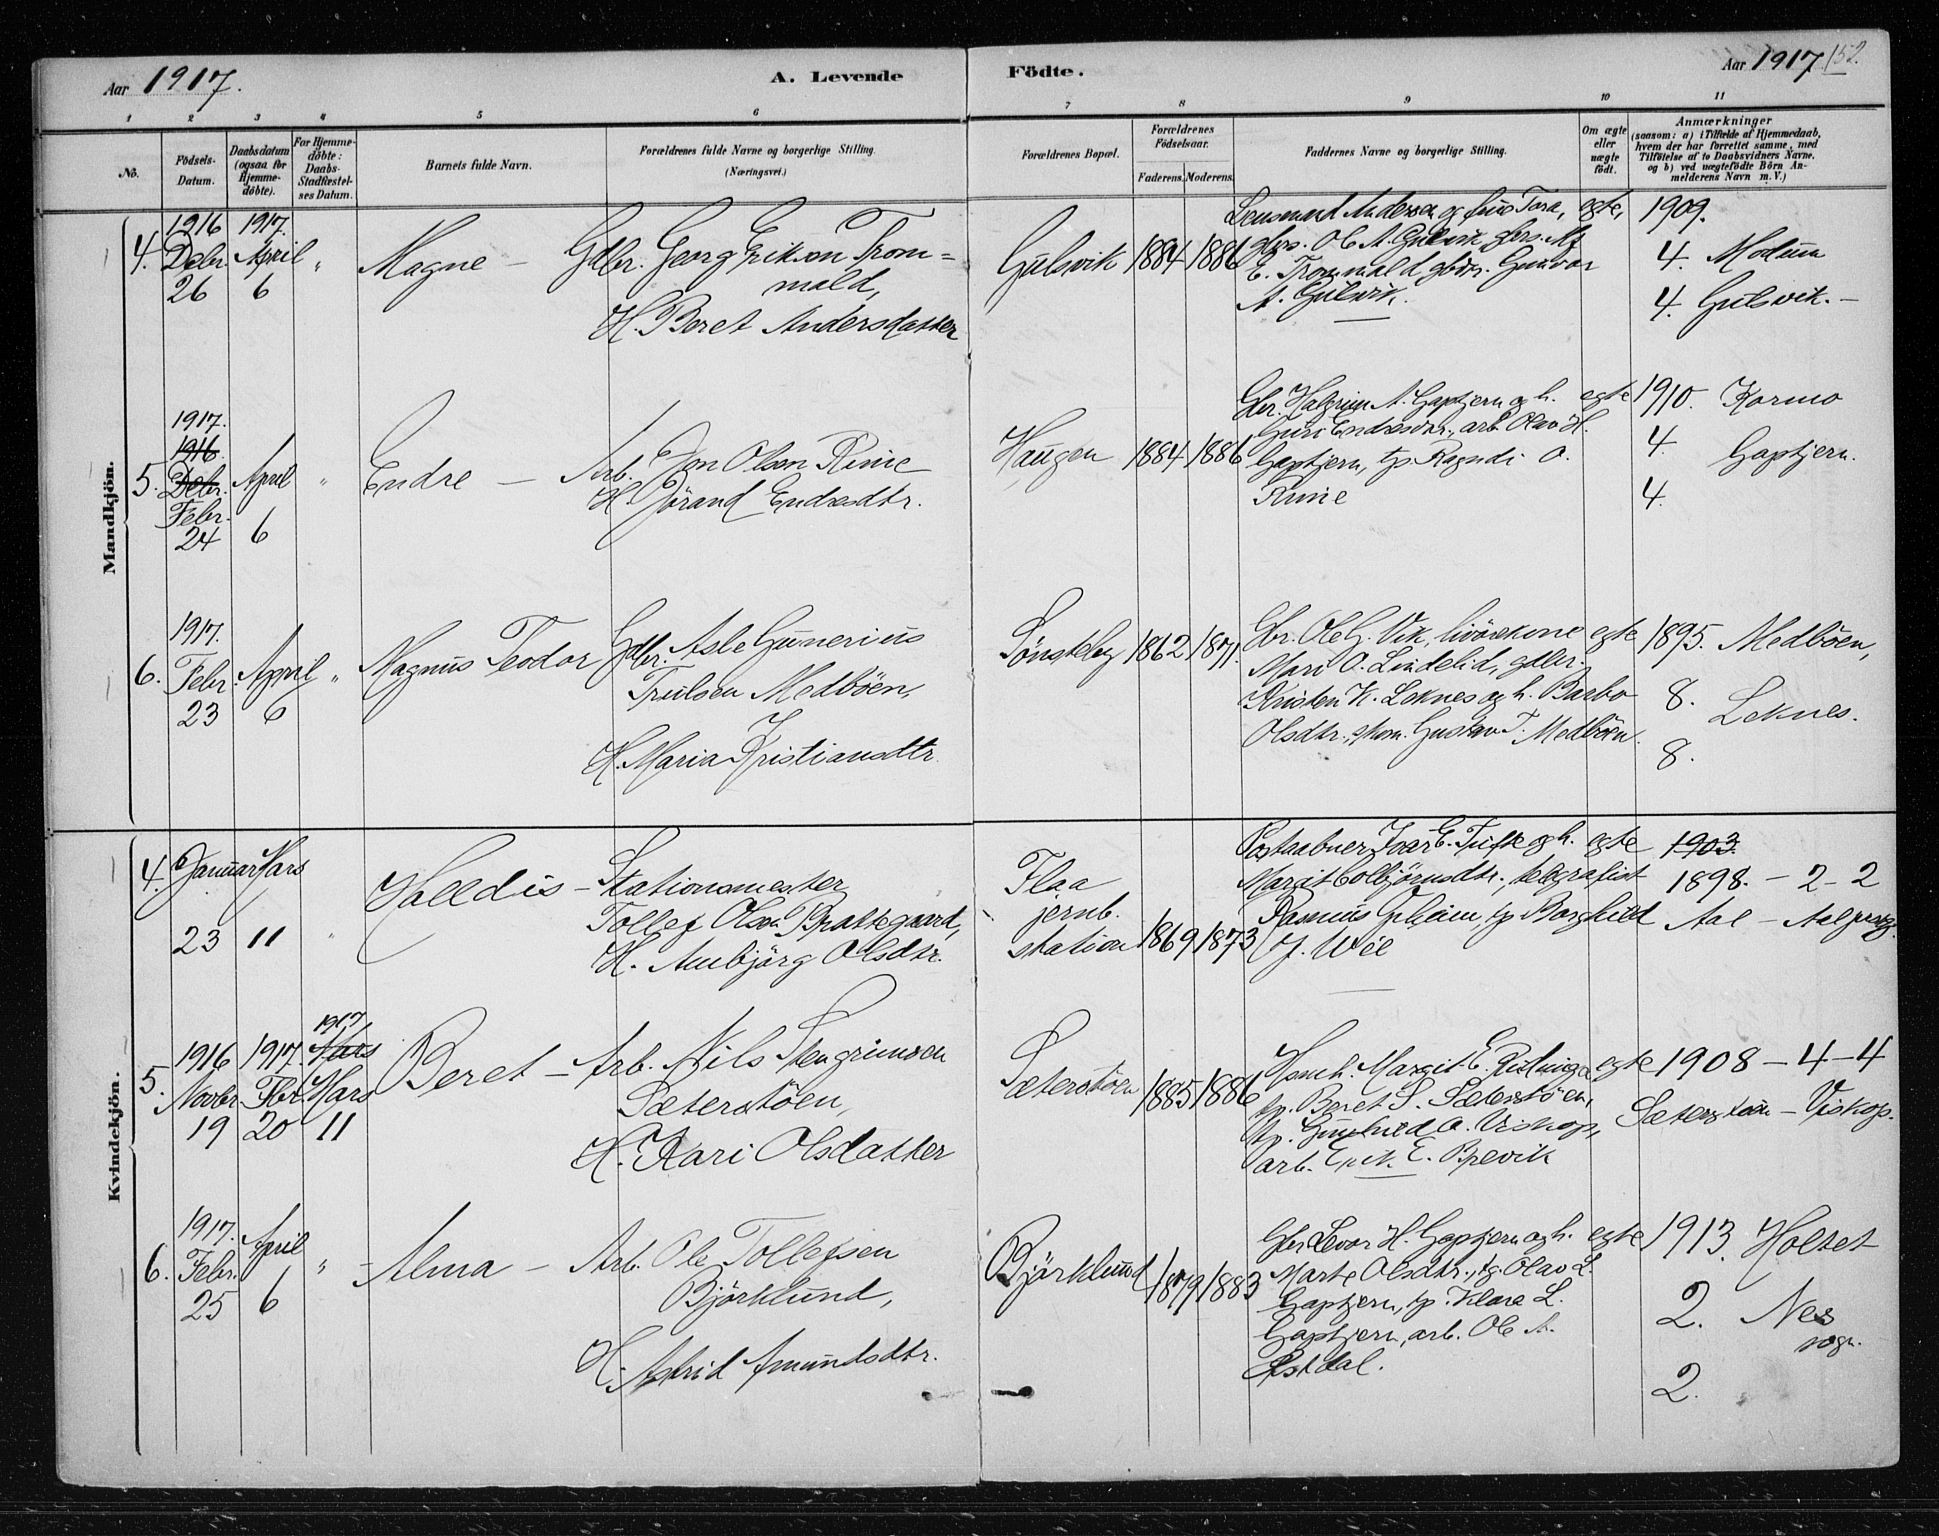 Aar 1917.
A. Levende
Födte.
Aar 1917
152.
1 2 3 4 5 6 7 8 9 10 11
No.
Födsels-
Datum.
Daabsdatum
(ogsaa for
Hjemme-
döbte).
For Hjemme-
döbte:
Daabs-
Stadfæstel-
ses Datum.
Barnets fulde Navn.
Forældrenes fulde Navne og borgerlige Stilling.
(Næringsvei.)
Forældrenes Bopæl.
Forældrenes
Födselsaar.
Faderens. Moderens.
Faddernes Navne og borgerlige Stilling.
Om ægte
eller
uægte
födt.
Anmærkninger
(saasom: a) i Tilfælde af Hjemmedaab,
hvem der har forrettet samme, med
Tilföielse af to Daabsvidners Navne.
og b) ved uægtefödte Börn An-
melderens Navn m. V.)
Mandkjön.
4.
1916
Debr.
26
1917.
April
6
"
Magne —
Gdbr. Georg Erikson Trom=
mald,
H. Beret Andersdatter
Gulsvik
1884
1886
Lensmand Andersen og frue Tora,
gbrs. Ole A. Gulsvik, gbrs.
E. Trommald, gbdr. Gunvor
A. Gulsvik.
egte,
1909.
4. Modum
4. Gulsvik. —
5.
1917.
1916.
Debr.
Febr.
24
April
6
"
Endre —
Arb. Jon Olsen Rime
H. Jörand Endresdtr.
Haugen
1884
1886
Gbr. Halgrim A. Gaptjern og h.
Guri Endresdtr., arb. Olav H.
Gaptjern, tp. Ragndi O.
Rime
egte
1910. Kormo
4. Gaptjern.
4.
6.
1917.
Febr.
23
April
6
"
Magnus Teodor
Gdbr. Asle Gunerius
Trulsen Medböen,
H. Maria Kristiansdtr.
Sönsteby
1862
1871.
Gbr. Ole G. Vik, livörekone
Mari O. Lindelid, gdbr.
Kristen K. Leknes og h. Barbo
Olsdtr., skom. Gustav T. Medböen.
egte
1895. Medböen,
8. Leknes.
8.
Kvindekjön.
4.
Januar
23
Mars
11
"
Halldis —
Stationsmester
Tollef Olsen Brattegaard,
H. Ambjörg Olsdtr.
Flaa
jernb.
station
1869
1873
Postaabner Ivar E. Tufte og h.
Margit Colbjörnsdtr., telegrafist
Rasmus Juheim, tp Borghild
J. Wiel
egte
1903.
1898. — 2 — 2
Aal — Aal prstg.
5.
1916
Novbr
19
1917.
Fbr.
20
1917
Mars
Mars
11
Beret —
Arb. Nils Stengrimsen
Sæterstöen,
H. Kari Olsdatter
Sæterstöen
1885
1886
Hsmk. Margit E. Kistinga
tp. Beret S. Sæterstöen,
tp. Gunhild O. Viskop,
arb. Erik E. Brevik
egte
1908 — 4 — 4
Seterstöen — Viskop.
6.
1917.
Febr.
25
April
6
"
Alma —
Arb. Ole Tollefsen
Björklund,
H. Astrid Amundsdtr.
Björklund
1879
1883
Gbr Levor H. Gaptjern og h.
Marte Olsdtr., tg. Olav L.
Gaptjern, tp. Klara L.
Gaptjern, arb. Ole A.
Östdal.
egte
1913. Holtet
2. Nes
sogn.
2.